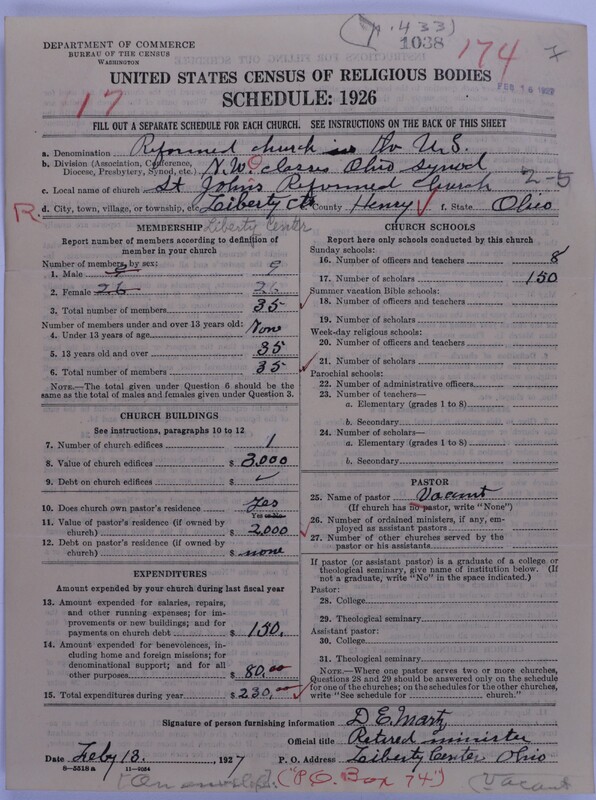 (p. 433)
1038
174
17
FEB 16 1927
DEPARTMENT OF COMMERCE
BUREAU OF THE CENSUS
WASHINGTON
UNITED STATES CENSUS OF RELIGIOUS BODIES
SCHEDULE: 1926
FILL OUT A SEPARATE SCHEDULE FOR EACH CHURCH. SEE INSTRUCTIONS ON THE BACK OF THIS SHEET
a. Denomination Reformed church in the U.S.
b. Division (Association, Conference, Diocese, Presbytery, Synod, etc.) N.W. classes Ohio Synod
c. Local name of church St John's Reformed Church 2-5
R. d. City, town, village, or township, etc. Liberty Ctr County Henry f. State Ohio
Liberty Center
MEMBERSHIP
Report number of members according to definition of
member in your church
Number of members by sex:
1. Male 9 9
2. Female 26 26
3. Total number of members 35
Number of members under and over 13 years old:
4. Under 13 years of age None
5. 13 years old and over 35
6. Total number of members 35
NOTE.—The total given under Question 6 should be
the same as the total of males and females given under Question 3.
CHURCH BUILDINGS
See instructions, paragraphs 10 to 12
7. Number of church edifices 1
8. Value of church edifices $ 3,000
9. Debt on church edifices $ ✓
10. Does church own pastor's residence Yes
Yes or No
11. Value of pastor's residence (if owned by
church) $ 2,000
12. Debt on pastor's residence (if owned by
church) $ none
EXPENDITURES
Amount expended by your church during last fiscal year
13. Amount expended for salaries, repairs,
and other running expenses; for im-
provements or new buildings; and for
payments on church debt $ 150.
14. Amount expended for benevolences,
including home and foreign missions; for
denominational support; and for all
other purposes $ 80.00
15. Total expenditures during year $ 230.00
CHURCH SCHOOLS
Report here only schools conducted by this church
Sunday schools:
16. Number of officers and teachers 8
17. Number of scholars 150
Summer vacation Bible schools:
18. Number of officers and teachers
19. Number of scholars
Week-day religious schools:
20. Number of officers and teachers
21. Number of scholars
Parochial schools:
22. Number of administrative officers
23. Number of teachers—
a. Elementary (grades 1 to 8)
b. Secondary
24. Number of scholars—
a. Elementary (grades 1 to 8)
b. Secondary
PASTOR
25. Name of pastor Vacant
(If church has no pastor, write "None")
26. Number of ordained ministers, if any, em-
ployed as assistant pastors
27. Number of other churches served by the
pastor or his assistants
If pastor (or assistant pastor) is a graduate of a college or
theological seminary, give name of institution below. (If
not a graduate, write "No" in the space indicated.)
Pastor:
28. College
29. Theological seminary
Assistant pastor:
30. College
31. Theological seminary
NOTE.—Where one pastor serves two or more churches,
Questions 28 and 29 should be answered only on the schedule
for one of the churches; on the schedules for the other churches,
write "See schedule for church."
Signature of person furnishing information D. E. Martz
Official title Retired minister
Date Feby 13. 1927 P. O. Address Liberty Center Ohio
8—5518a 11—9034
("P.O. Box 74")
(Vacant